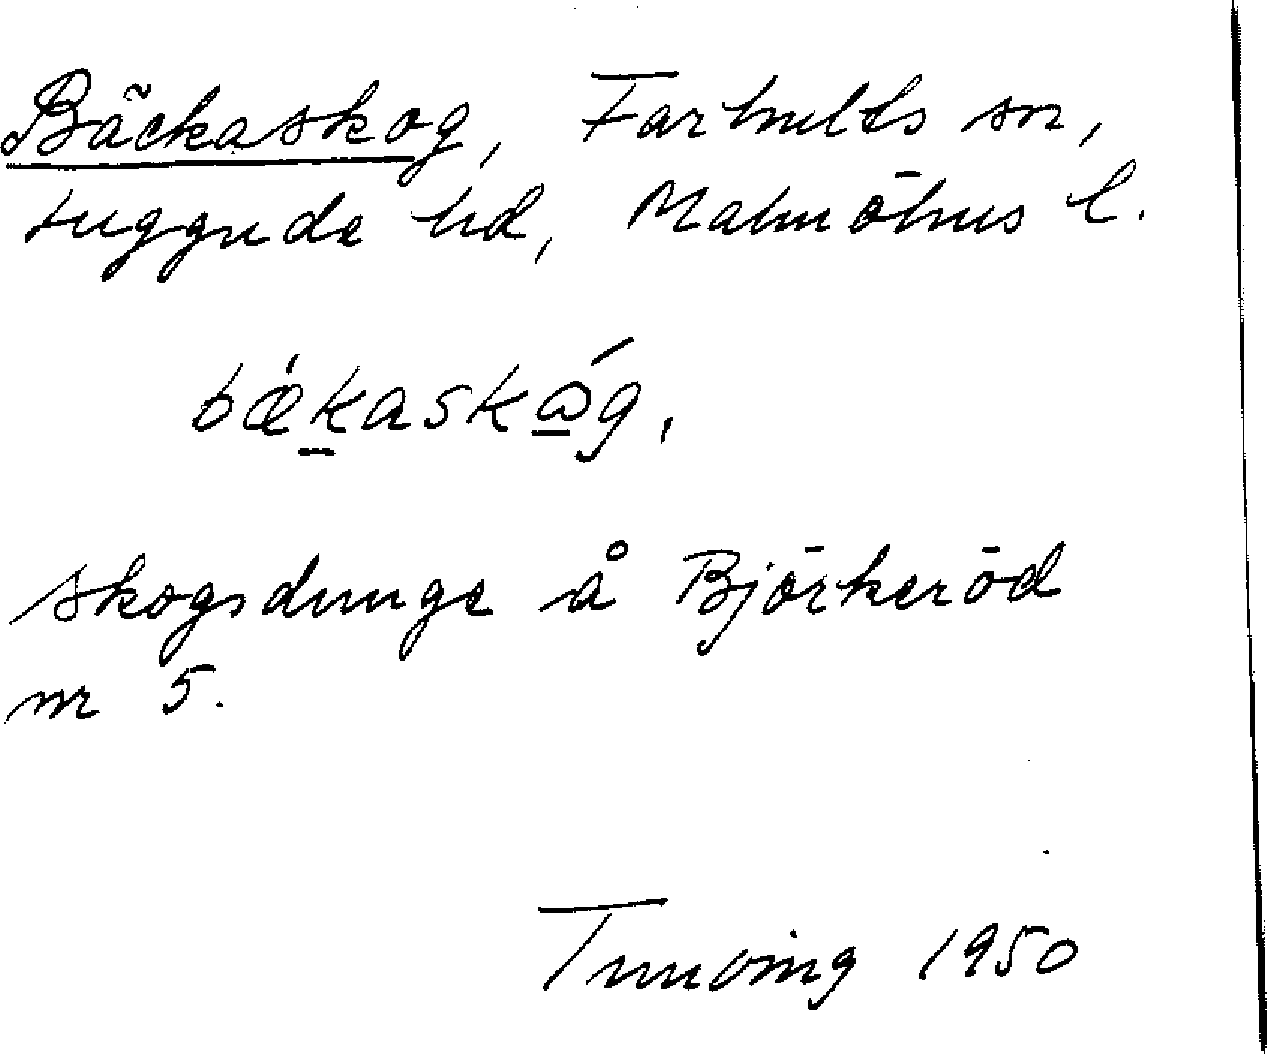 Bäckaskog, Farhults sn,
Luggude hd, Malmöhus l.
bǽkaskǿg,
skogsdunge å Björkeröd
nr 5.
Tunving 1950